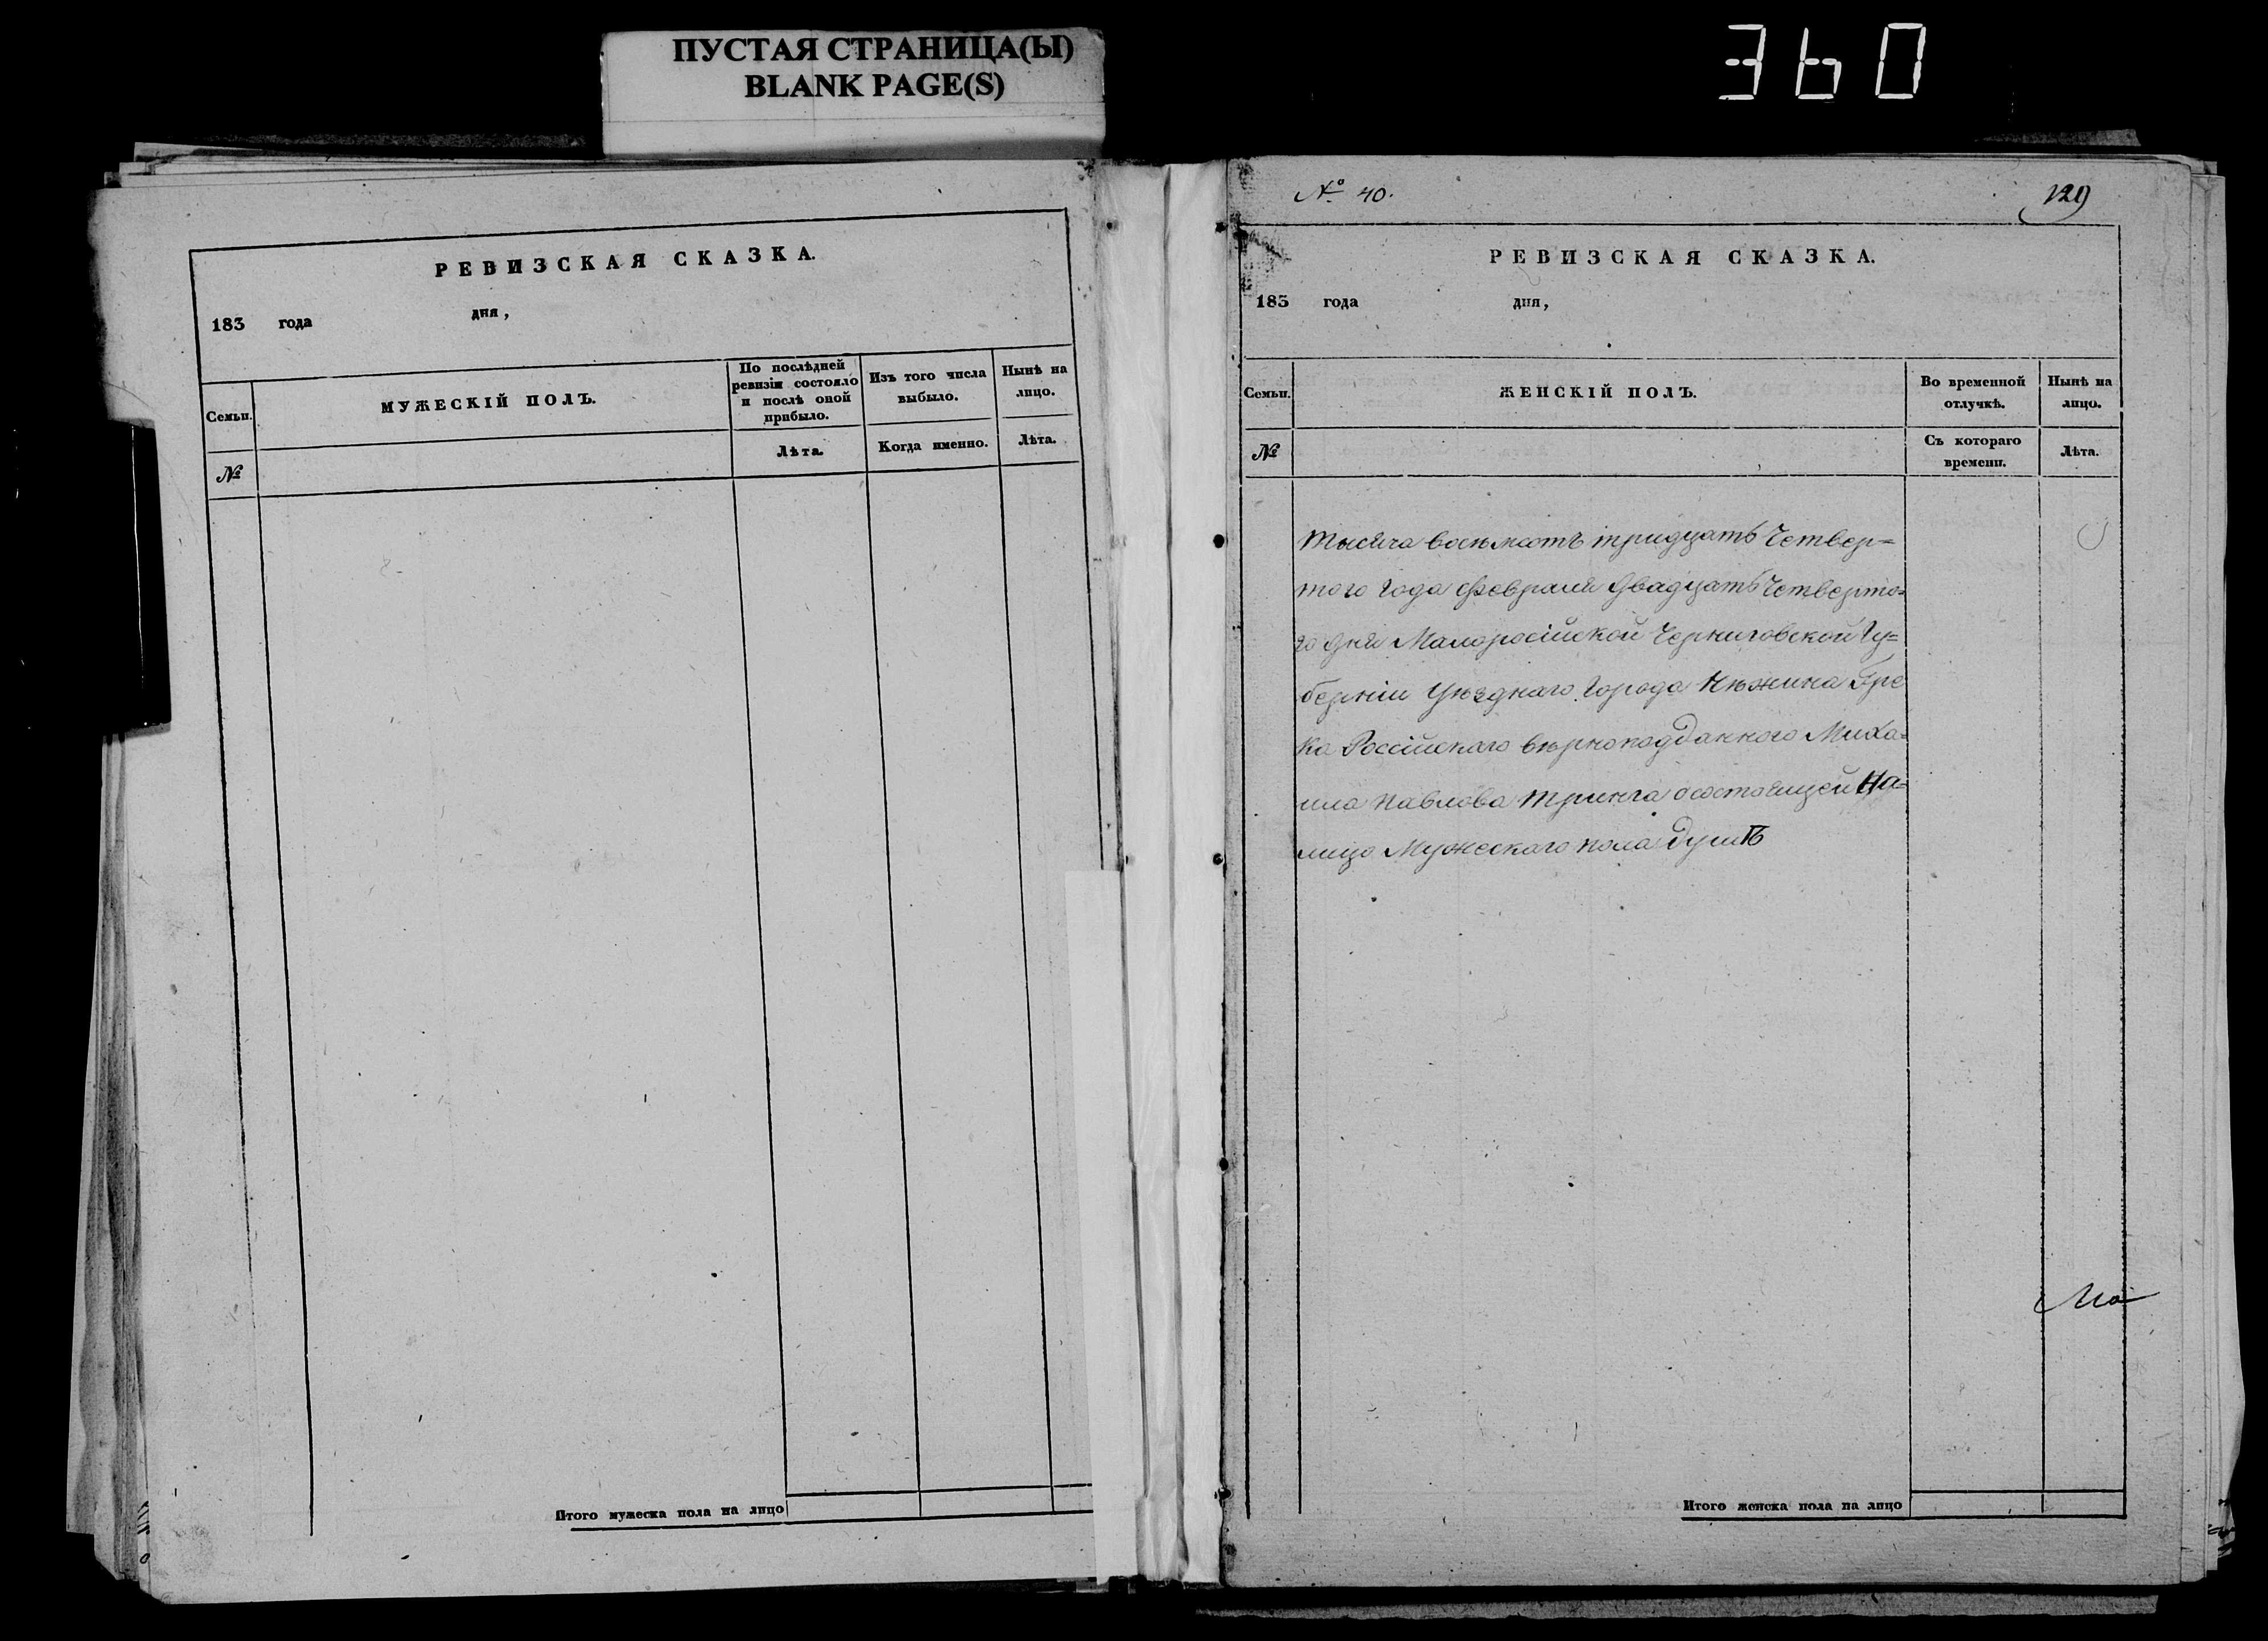 ПУСТАЯ СТРАНИЦА(Ы)
BLANK PAGE(S)
360
РЕВИЗСКАЯ СКАЗКА.
183 года дня,
Семьи.
МУЖЕСКІЙ ПОЛЪ.
По послѣдней
ревизіи состояло
и послѣ оной
прибыло.
Изъ того числа
выбыло.
Нынѣ на
лицо.
№
Лѣта.
Когда именно.
Лѣта.
Итого мужеска пола на лицо
№ 40.
129
РЕВИЗСКАЯ СКАЗКА.
183 года дня,
Семьи.
ЖЕНСКІЙ ПОЛЪ.
Во временной
отлучкѣ.
Нынѣ на
лицо.
№
Съ котораго
времени.
Лѣта.
Тысяча восемсотъ тридцать четвер=
того года февраля двадцать четверто=
го дня Малоросійской Черниговской Гу=
берніи Уѣзднаго города Нѣжина Гре
ка Россійскаго вѣрноподданного Миха=
ила Павлова осостоящей На=
лицо Мужескаго пола душѣ
Итого женска пола на лицо